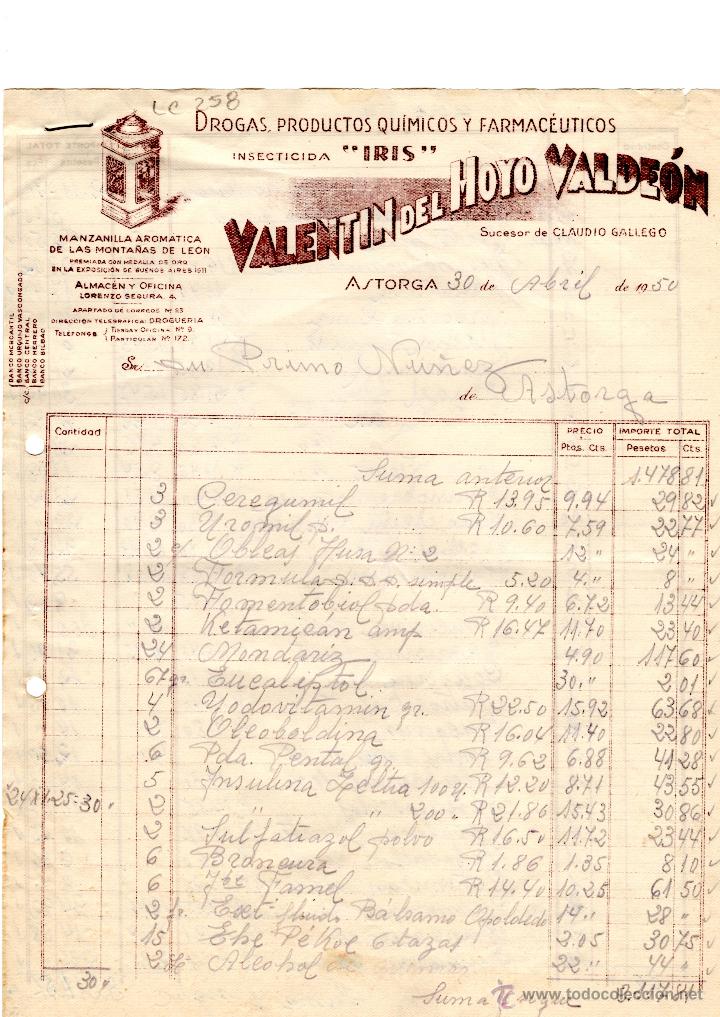 LC 258
DROGAS, PRODUCTOS QUÍMICOS Y FARMACÉUTICOS
INSECTICIDA "IRIS"
VALENTIN DEL HOYO VALDEÓN
Sucesor de CLAUDIO GALLEGO
MANZANILLA AROMATICA
DE LAS MONTAÑAS DE LEÓN
PREMIADA CON MEDALLA DE ORO
EN LA EXPOSICIÓN DE BUENOS AIRES 1911
ALMACÉN Y OFICINA
LORENZO SEGURA, 4.
APARTADO DE CORREOS Nº 23
DIRECCIÓN TELEGRAFICA: DROGUERIA
TELEFONOS { TIENDA Y OFICINA Nº 9.
PARTICULAR Nº 172.
c/c BANCO MERCANTIL
BANCO URQUIJO VASCONGADO
BANCO CENTRAL
BANCO HERRERO
BANCO BILBAO
ASTORGA 30 de Abril de 1950
Sr. Primo Núñez
de Astorga
Cantidad PRECIO IMPORTE TOTAL
Ptas. Cts. Pesetas Cts.
Suma anterior 1.478 81
3 Ceregumil R 13.95 9.94 29 82
3 Uromil p. R 10.60 7.59 22 77
2 c/ Obleas Husa Nº 2 12 " 24 "
2 Formula simple 5.20 4. " 8 "
2 Fomentobiol pda. R 9.40 6.72 13 44
2 Ketamicán amp R 16.47 11.70 23 40
24 Mondariz 4.90 117 60
67 gr. Eucaliptol 30. " 2 01
4 Yodovitamin gr. R 22.50 15.92 63 68
2 Oleoboldina R 16.04 11.40 22 80
6 Pda. Pental gr R 9.62 6.88 41 28
5 Insulina Leltia 100 R 12.20 8.71 43 55
24 x 1.25 = 30 "
2 " " 200 " R 21.86 15.43 30 86
2 Sulfatiazol polvo R 16.50 11.72 23 44
6 Broneura R 1.86 1.35 8 10
6 Jbe Famel R 14.40 10.25 61 50
2 Ext. fluido Bálsamo Opoldedo 14 " 28 "
15 Ehe Pékoe 6 tazas 2.05 30 75
2 Alcohol de 22 " 44 "
30 "
Suma y sigue 2.117 81
todocoleccion
www.todocoleccion.net